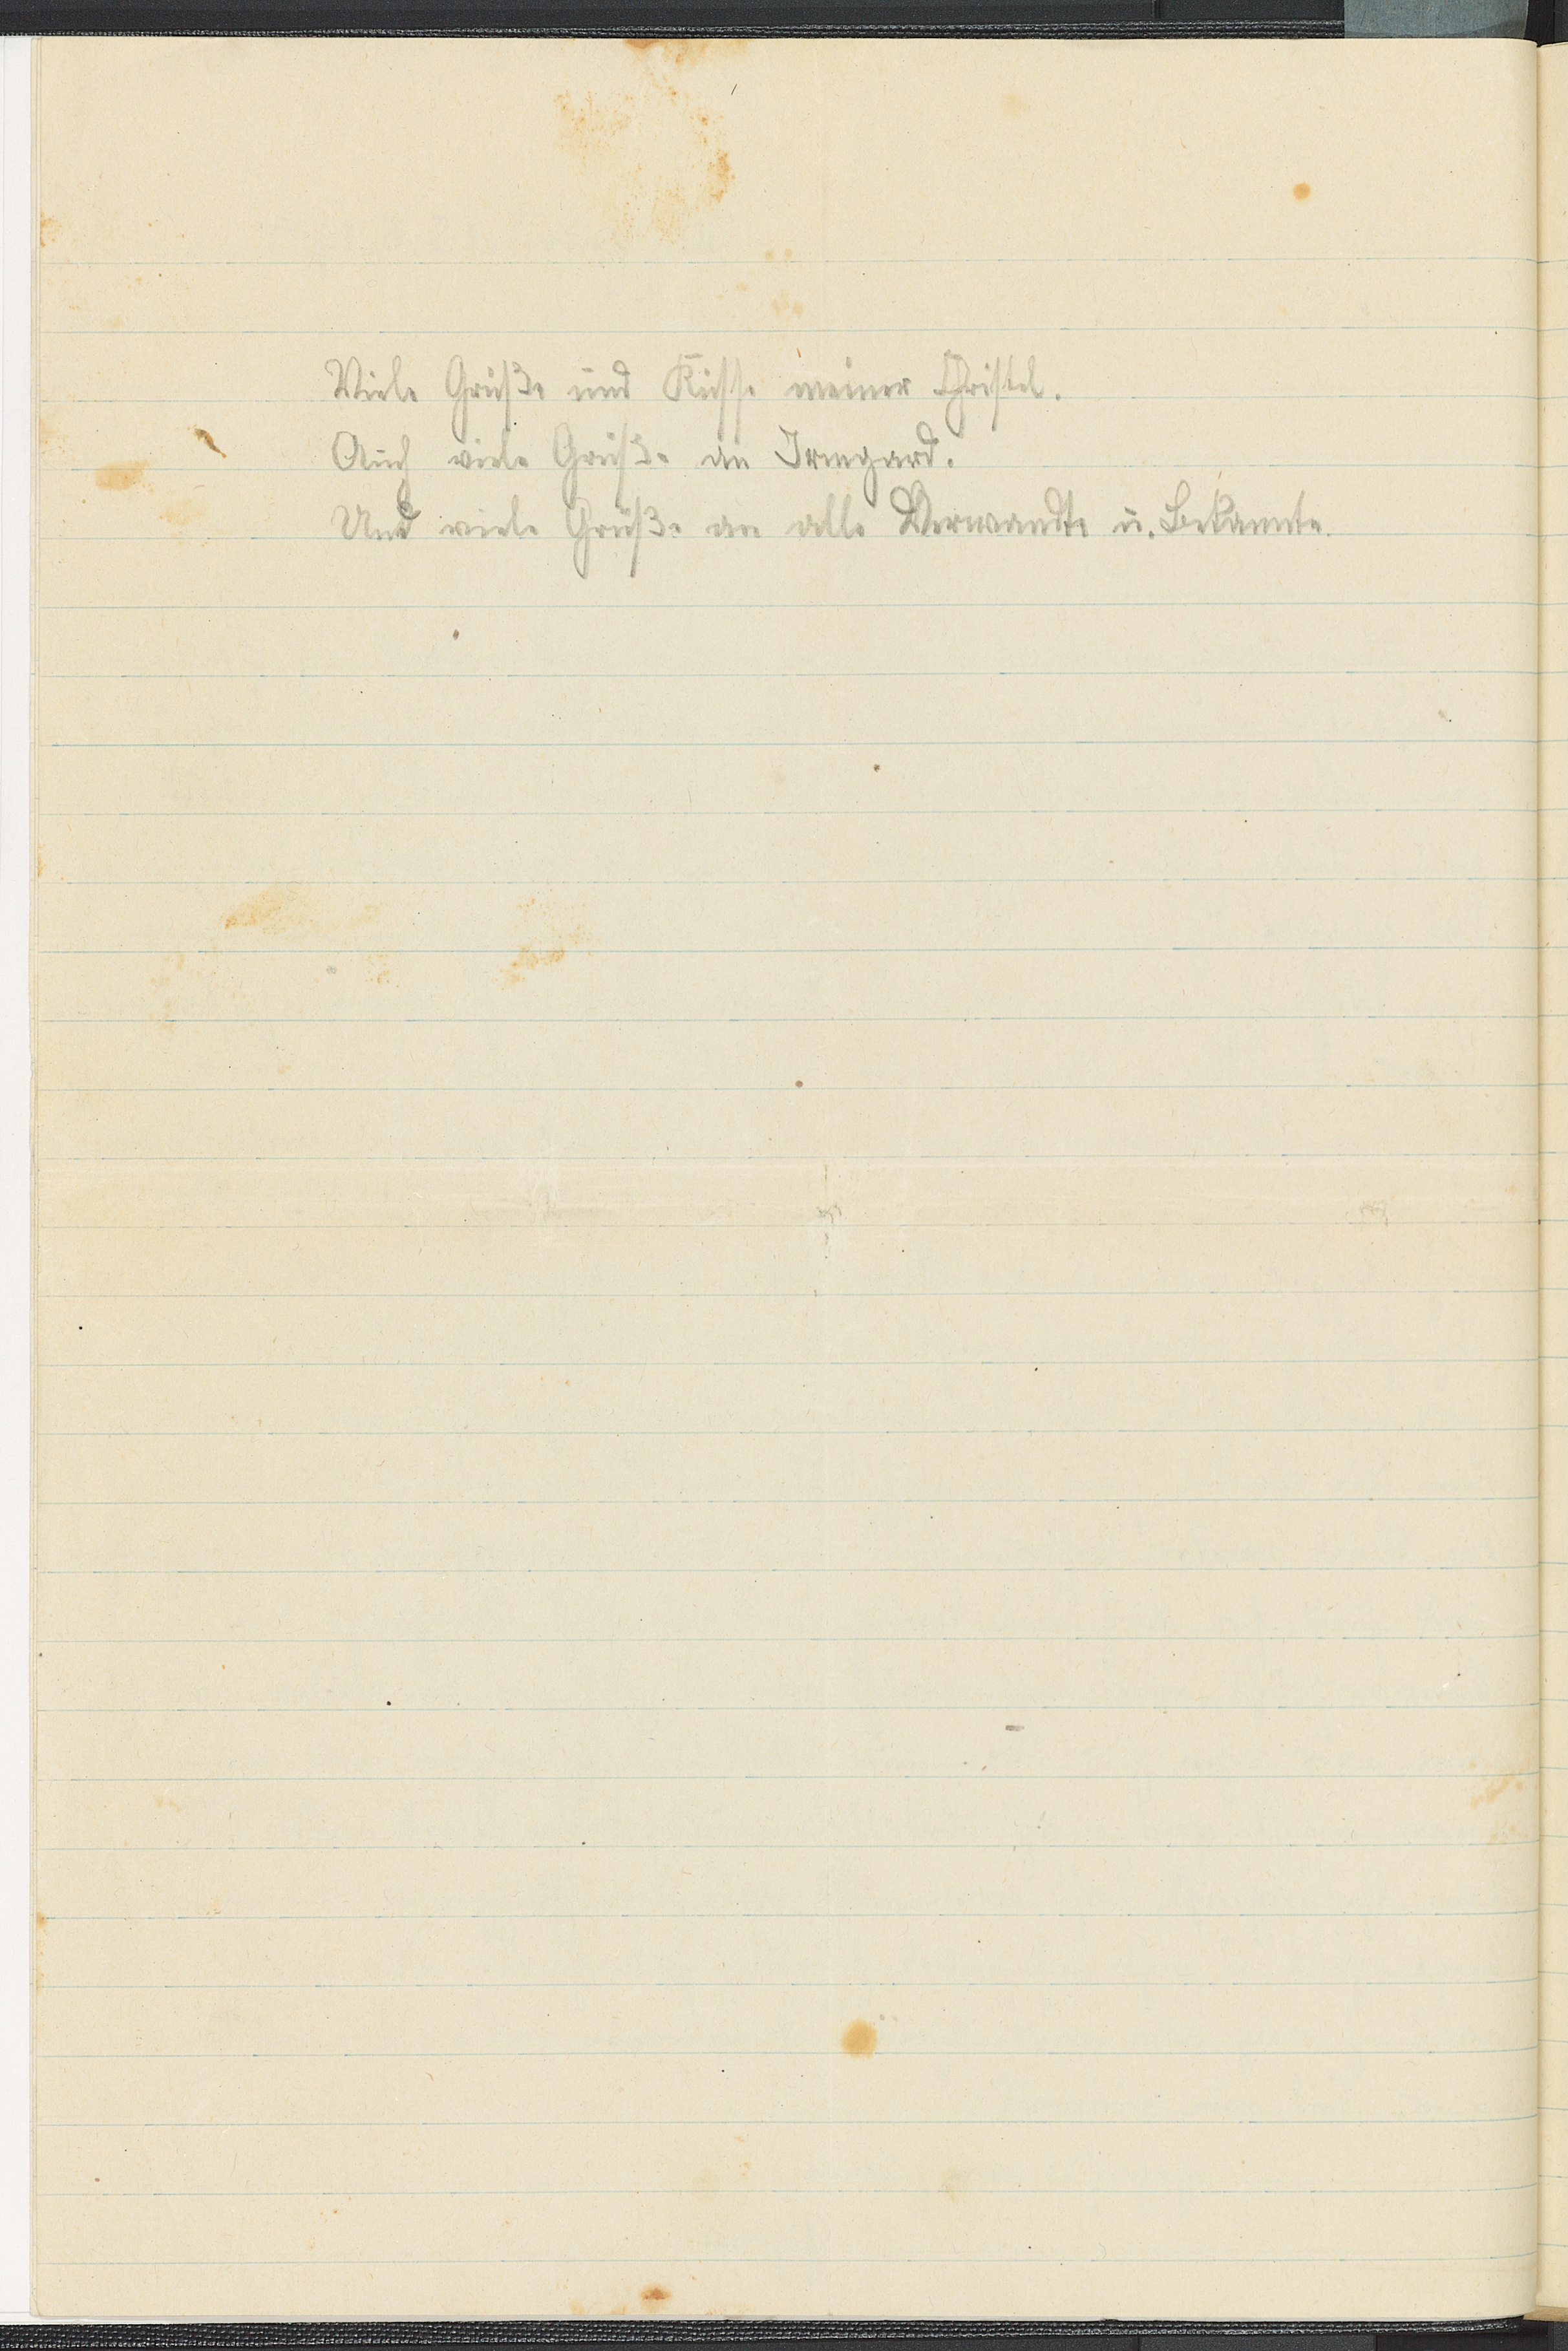 Viele Grüße und Küsse meiner Christel.
Auch viele Grüße an Irmgard.
Und viele Grüße an alle Verwandte u. Bekannte.